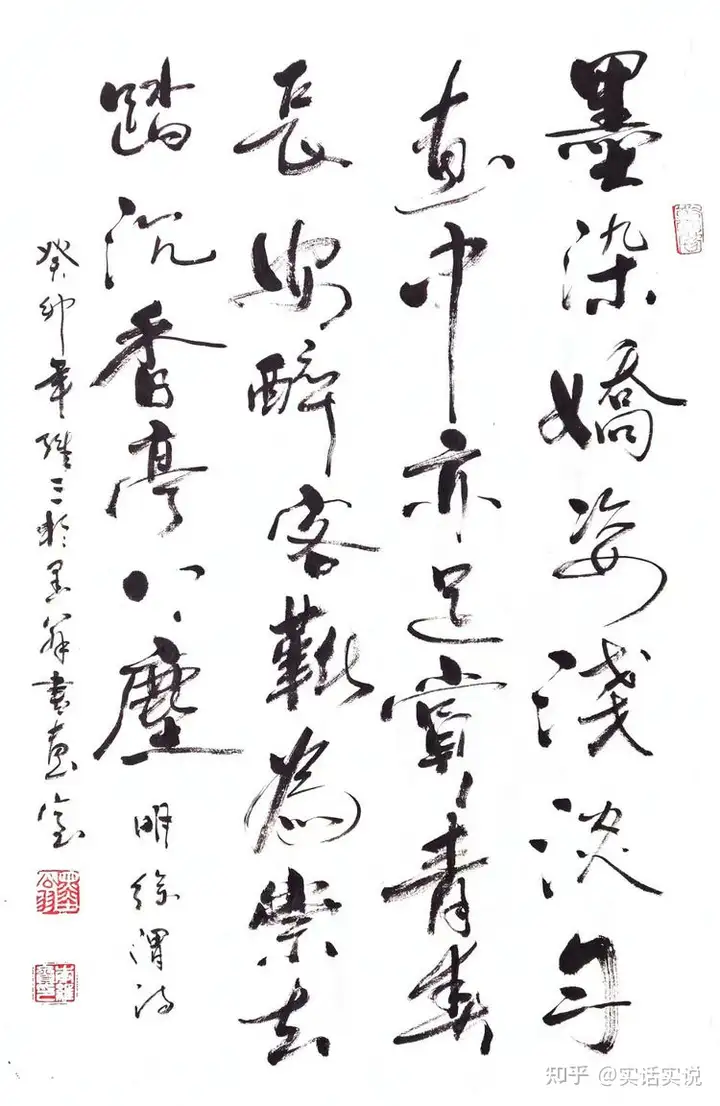 墨染嬌姿淺淡勻
畫中亦足賞青春
長安醉客靴為祟去
踏沉香亭上塵 明徐渭詩
癸卯年 三於墨翁書畫室
知乎 @实话实说